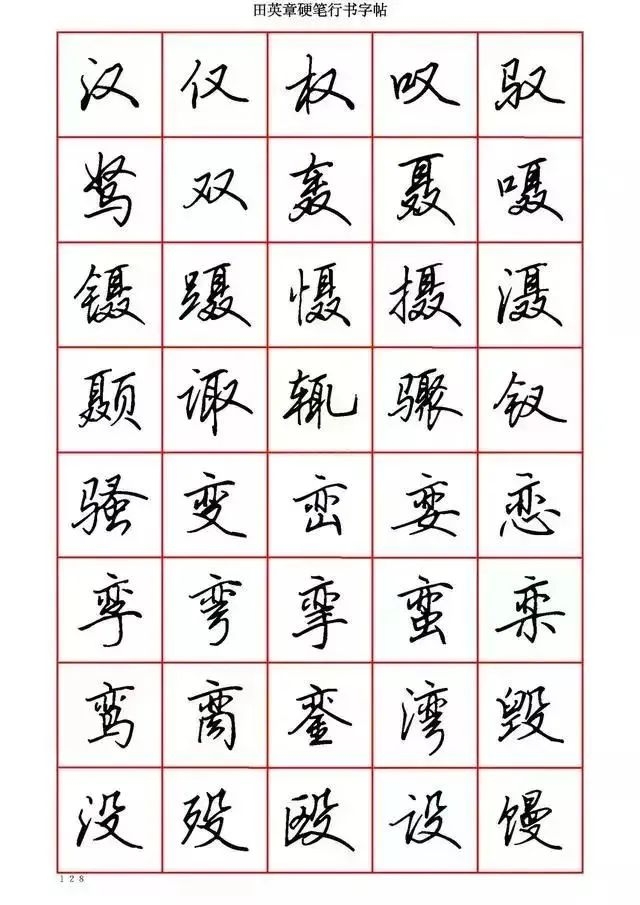 田英章硬笔行书字帖
汉仅权叹驭
驽双轰聂嗫
镊蹑慑摄滠
颞诹辄骤钗
骚变峦娈恋
孪弯挛蛮栾
鸾脔銮湾毁
没殁殴设馒
128